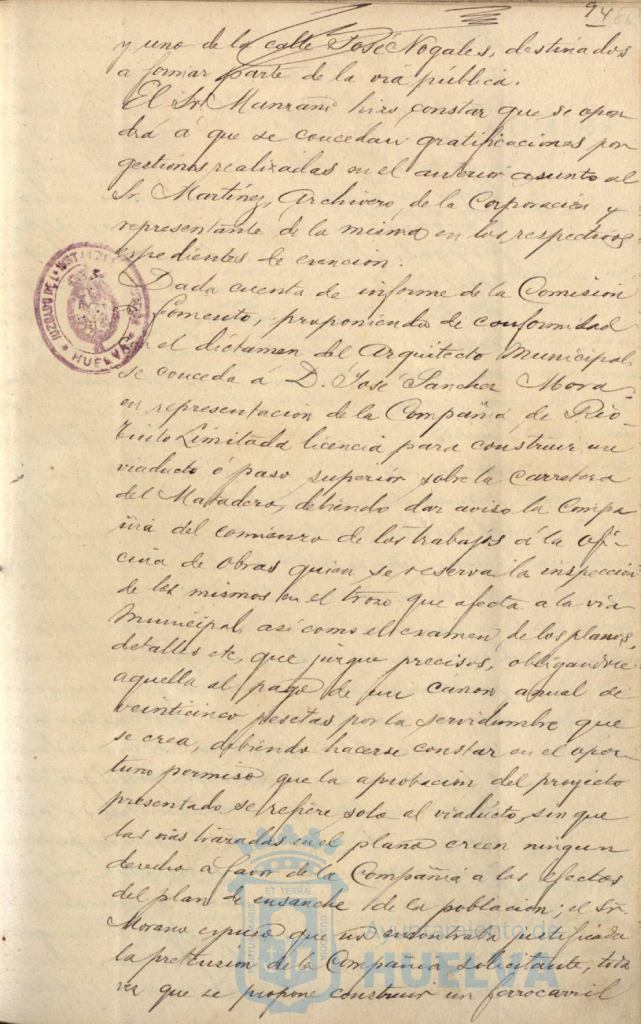 94
y uno de la calle José Nogales, destinados
a formar parte de la vía pública.
El Sr. Manzano hizo constar que se opon
drá á que se concedan gratificaciones por
gestiones realizadas en el anterior asunto al
Sr. Martínez, Archivero de la Corporación y
representante de la misma en los respectivos
expedientes de exención.
Dada cuenta de informe de la Comisión
Fomento, proponiendo de conformidad
el dictamen del Arquitecto Municipal
se conceda á D. José Sanchez Mora
en representación de la Compañía de Rio-
Tinto Limitada licencia para construir un
viaducto ó paso superior sobre la carretera
del Matadero, debiendo dar aviso la Compa
ñía del comienzo de los trabajos á la ofi-
cina de obras quien se reserva la inspección
de los mismos en el trozo que afecta a la vía
Municipal, así como el examen de los planos,
detalles etc, que juzgue precisos, obligandose
aquella al pago de un cánon anual de
veinticinco pesetas por la servidumbre que
se crea, debiendo hacerse constar en el opor-
tuno permiso que la aprobación del proyecto
presentado se refiere solo al viaducto, sin que
las vías trazadas en el plano creen ningun
derecho a favor de la Compañía á los efectos
del plan de ensanche de la población; el Sr.
Morano expuso que no encontraba justificada
la pretensión de la Compañía solicitante, toda
vez que se propone construir un ferrocarril
JUZGADO DE
HUELVA
ET TERRAE
Ayuntamiento de
HUELVA